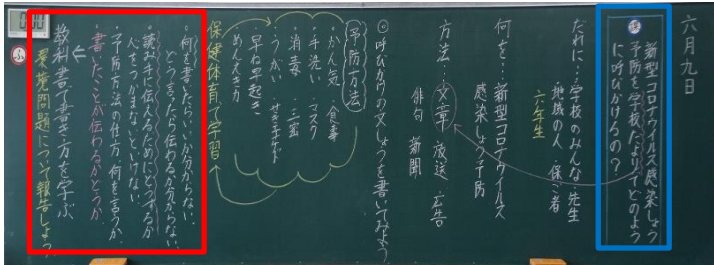 六月九日
新型コロナウイルス感染しょう
予防を学校だよりでどのよう
に呼びかけるの？
だれに…学校のみんな 先生
地域の人・保ご者
六年生
何を…新型コロナウイルス
感染しょう予防
方法…文章 放送 広告
俳句 新聞
◎呼びかけの文しょうを書いてみよう。
予防方法
・かん気 ・食事
・手洗い ・マスク
・消毒 ・三密
・うがい ・せきエチケット
・早ね早起き
・めんえき力
保健体育の学習
・何を書いたらいいか分からない。
どう言ったら伝わるか分からない。
・読み手に伝えるためにどうするか
心をつかまないといけない
・予防方法の仕方、何を言うか、
・書いたことが伝わるかどうか
教科書で書き方を学ぶ
環境問題について報告しよう
ふ